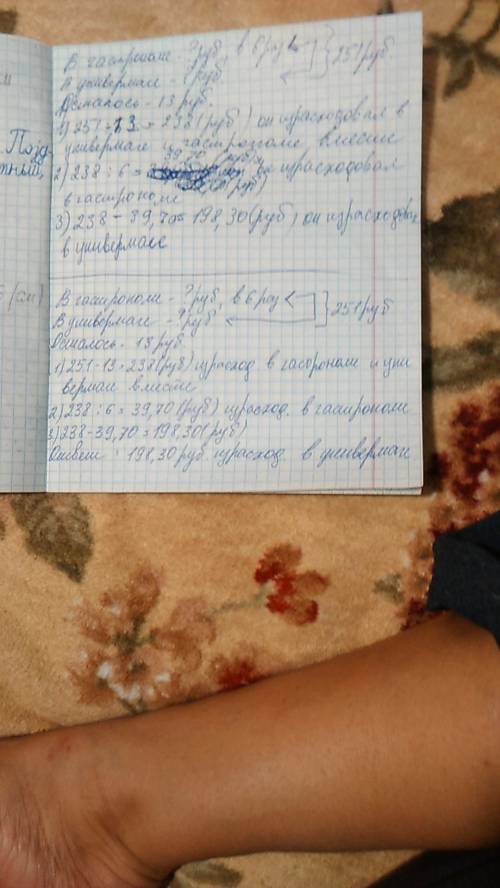 В гастрономе - ? руб, в 6 раз <
В универмаге - ? руб.
251 руб
Осталось - 13 руб.
1) 251 - 13 = 238 (руб) он израсходовал в
универмаге и гастрономе вместе
2) 238 : 6 = 39,70 (руб) он израсходовал
в гастрономе
3) 238 - 39,70 = 198,30 (руб) он израсходовал
в универмаге
В гастрономе - ? руб, в 6 раз <
В универмаге - ? руб
251 руб
Осталось - 13 руб.
1) 251 - 13 = 238 (руб) израсход в гастрономе и уни
вермаге вместе
2) 238 : 6 = 39,70 (руб) израсход. в гастрономе
3) 238 - 39,70 = 198,30 (руб)
Ответ : 198,30 руб израсход. в универмаге
Позд
тный,
(см)